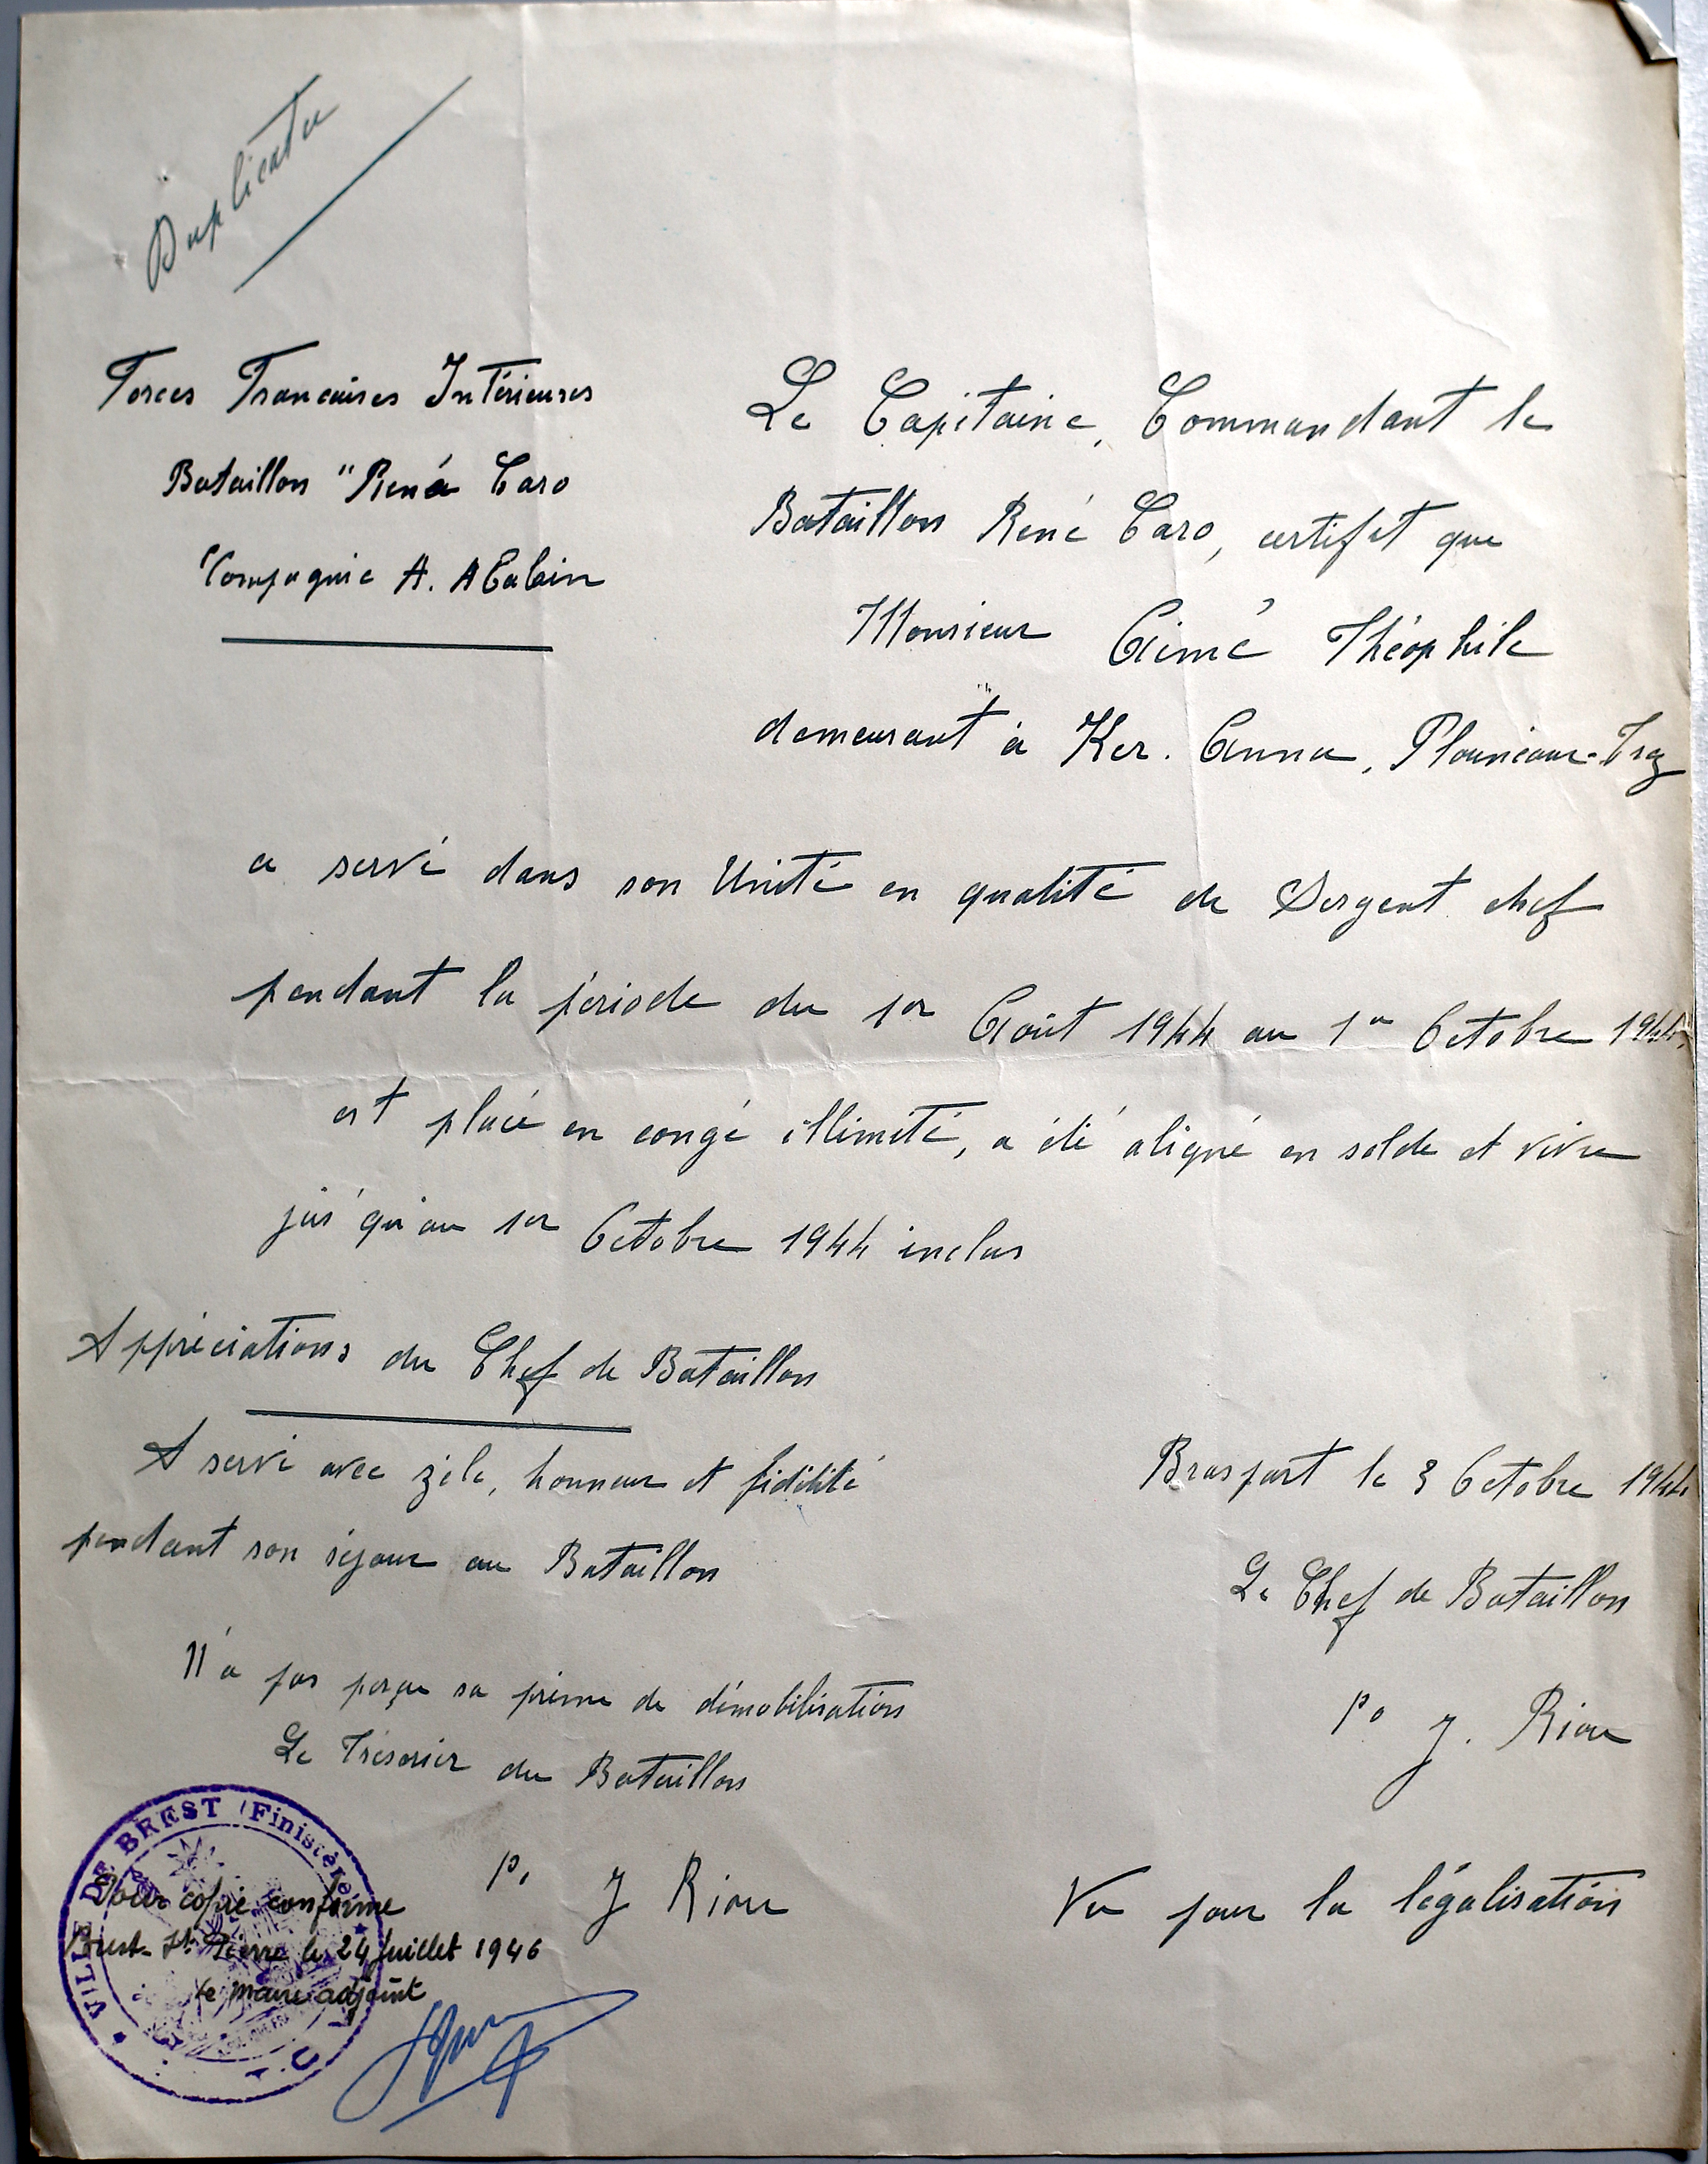 Duplicata
Forces Francaises Intérieures
Bataillon "René Caro
Compagnie A. Abalain
Le Capitaine, Commandant le
Bataillon René Caro, certifit que
Monsieur Aimé Théophile
demeurant à Ker. Anna, Plounéour-Trez
a servi dans son Unité en qualité de Sergent chef
pendant la période du 1er Août 1944 au 1er Octobre 1944,
est placé en congé illimité, a été aligné en solde et vivre
jus'qu'au 1er Octobre 1944 inclus
Appréciations du Chef de Bataillon
A servi avec zèle, honneur et fidélité
pendant son séjour au Bataillon
N'a pas perçu sa prime de démobilisation
Le Trésorier du Bataillon
Po J Riou
Braspart le 3 Octobre 1944
Le Chef de Bataillon
Po J. Riou
Vu pour la légalisation
VILLE DE BREST (Finistère)
Pour copie conforme
Brest-St Pierre le 24 Juillet 1946
Le maire adjoint